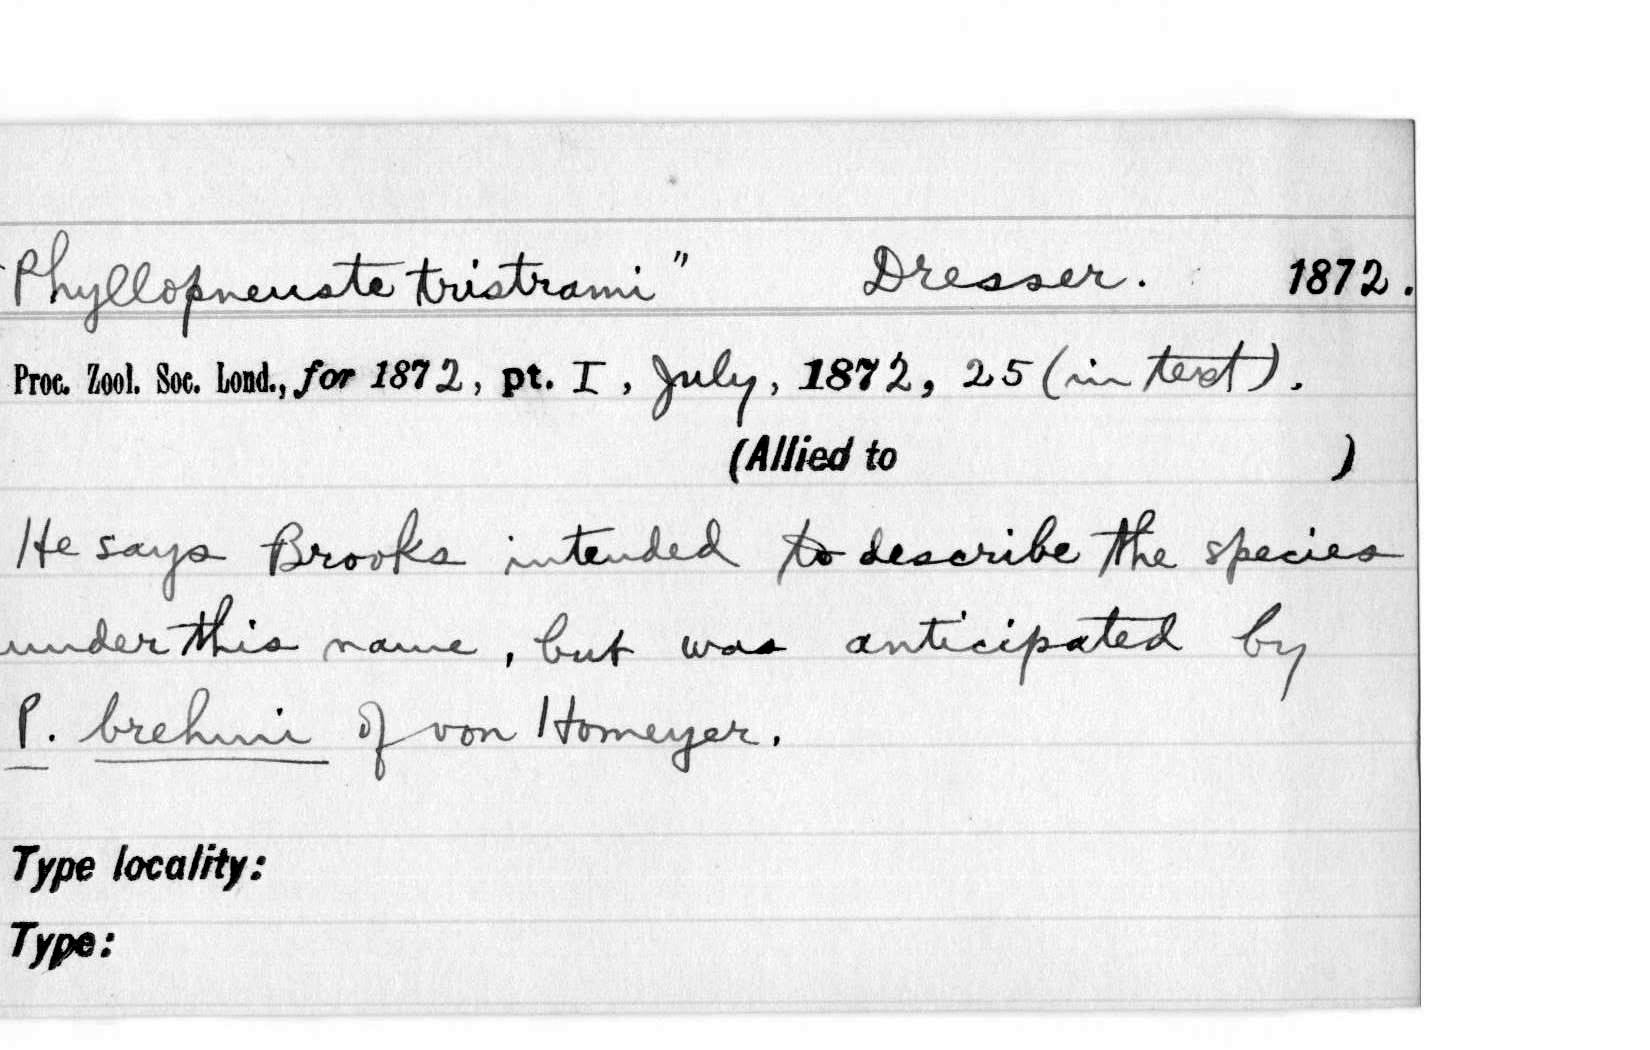 "Phyllopneuste tristrami" Dresser. 1872.
Proc. Zool. Soc. Lond., for 1872, pt. I, July, 1872, 25 (in text).
(Allied to )
He says Brooks intended to describe the species
under this name, but was anticipated by
P. brehmi of von Homeyer.
Type locality:
Type: